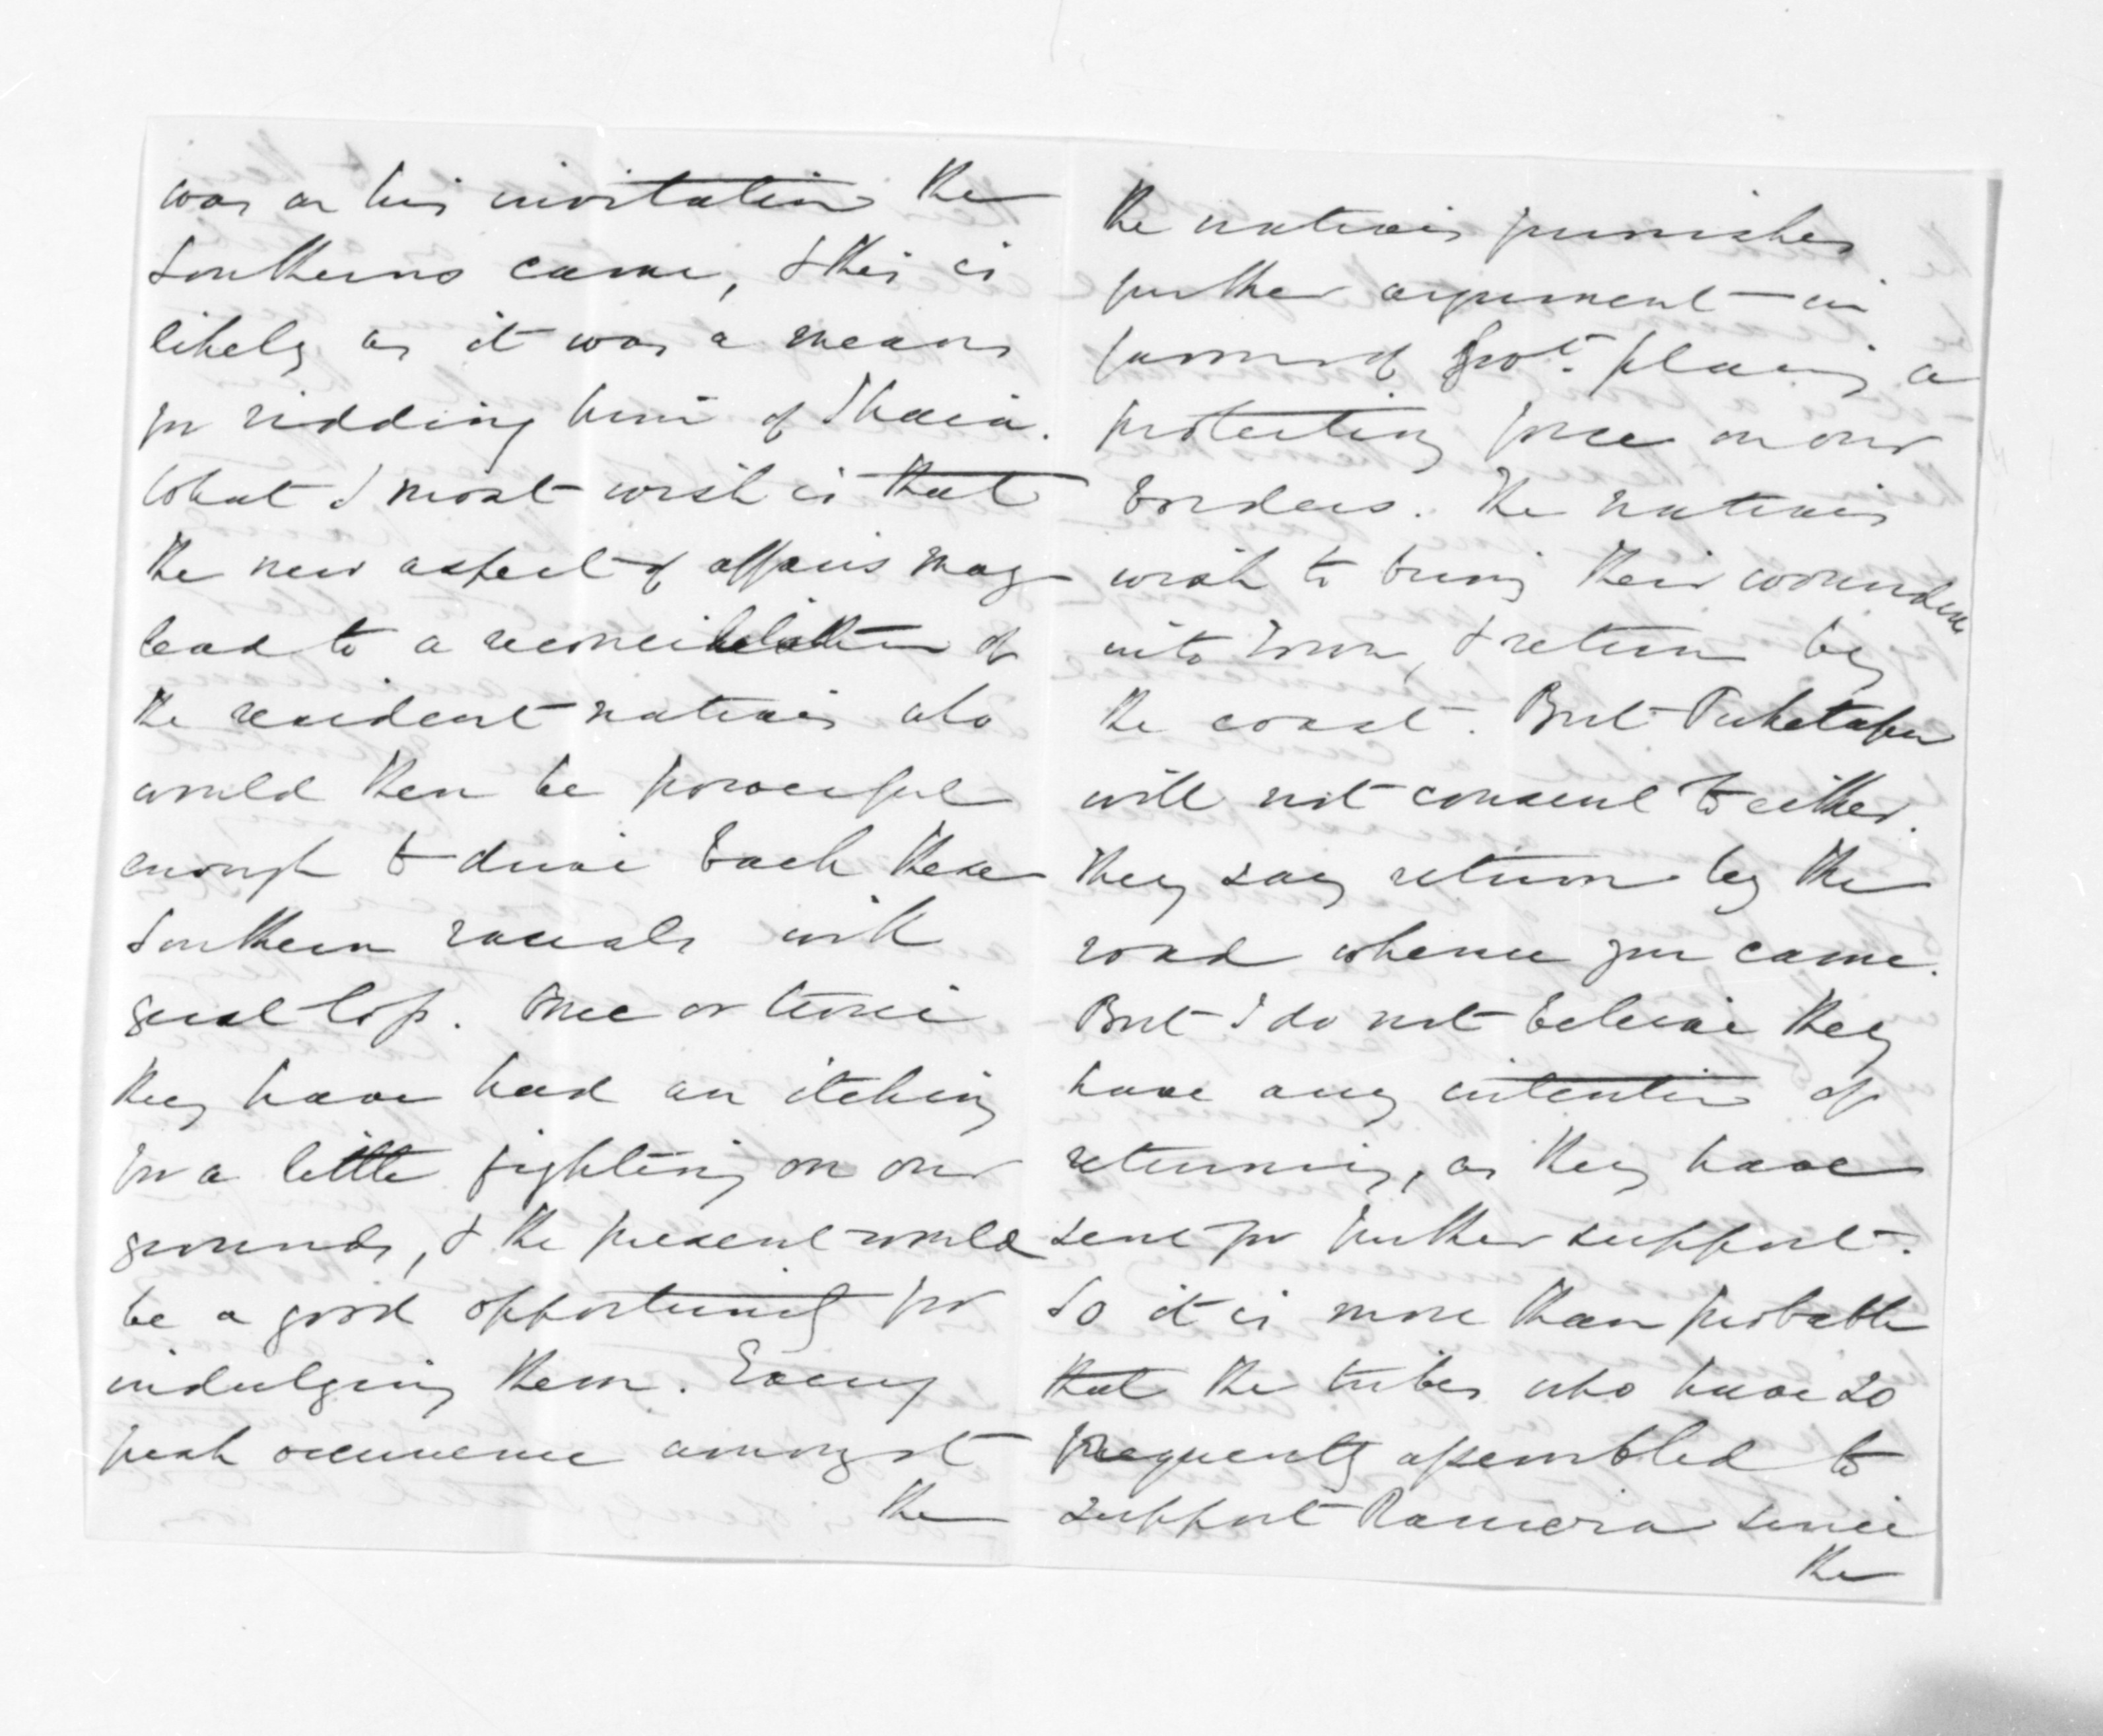 was on his invitation the
Southerns came, & this is
likely as it was a means
for ridding him of Ihaia.
What I most wish is that
the new aspect of affairs may
lead to a reconciliation of
the resident natives who
would then be powerful
enough to drive back these
Southern rascals with
great loss. Once or twice
they have had an itching
for a little fighting on our
grounds, & the present would
be a good opportunity for
indulging them. Every
fresh occurrence amongst
the
the natives furnishes
further argument in
favour of Govt. placing a
protecting force on our
borders. The natives
wish to bring their wounded
into Town, & return by
the coast. But Puketapu
will not consent to either.
They say return by the
road whence you came.
But I do not believe they
have any intention of
returning, as they have
sent for further support.
So it is more than probable
that the tribes who have so
frequently assembled to
support Rawiri since
the